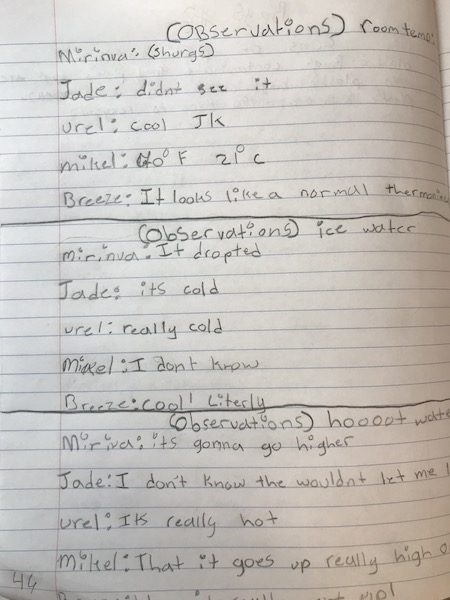 (Observations) room temp:
Mirinva: (shurgs)
Jade: didnt see it
urel: cool Jk
mikel: 70°F 21°C
Breeze: It looks like a normal
(Observations) ice water
mirinva: It dropted
Jade: its cold
urel: really cold
Mikel: I dont know
Breeze: cool! Literly
(Observations) hoooot
Miriva: its gonna go higher
Jade: I don't know the wouldnt let me
urel: Its really hot
mikel: That it goes up really high
44